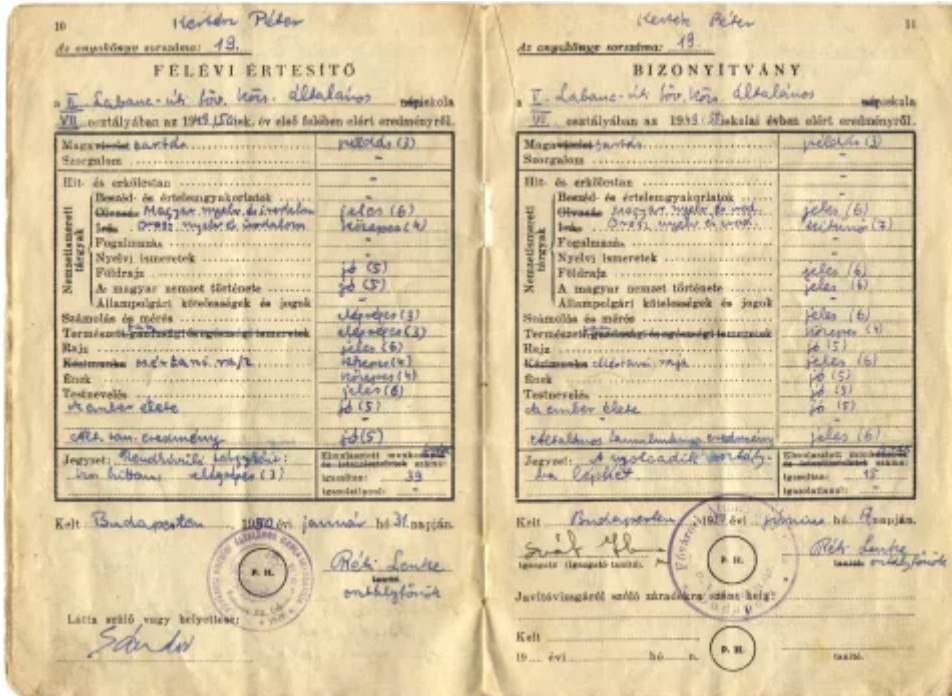 10
Kertész Péter
Az anyakönyv sorszáma: 19.
FÉLÉVI ÉRTESÍTŐ
a II. Labanc-úti föv. közs. általános népiskola
VII. osztályában az 1949/50 isk. év első felében elért eredményről.
Magaviselet tartás példás (3)
Szorgalom -
Hit- és erkölcstan -
Nemzetismereti tárgyak
Beszéd- és értelemgyakorlatok -
Olvasás Magyar nyelv és irodalom jeles (6)
Írás Orosz nyelv és irodalom közepes (4)
Fogalmazás -
Nyelvi ismeretek -
Földrajz jó (5)
A magyar nemzet története jó (5)
Állampolgári kötelességek és jogok -
Számolás és mérés elégséges (3)
Természeti, gazdasági és egészségi ismeretek elégséges (3)
Rajz jeles (6)
Kézimunka mértani rajz közepes (4)
Ének közepes (4)
Testnevelés jeles (6)
Az ember élete jó (5)
Ált. tan. eredmény jó (5)
Jegyzet: Rendkívüli tárgyként:
hittan elégséges (3)
igazoltan: 39
igazolatlanul: -
Kelt Budapesten, 1950 évi január hó 31 napján.
P. H.
Réti Lenke
tanító
osztályfőnök
Látta szülő vagy helyettese:
Sándor
11
Kertész Péter
Az anyakönyv sorszáma: 19.
BIZONYÍTVÁNY
a II. Labanc-úti föv. közs. általános népiskola
VII. osztályában az 1949/50 iskolai évben elért eredményről.
Magaviselet tartás példás (3)
Szorgalom -
Hit- és erkölcstan -
Nemzetismereti tárgyak
Beszéd- és értelemgyakorlatok -
Olvasás Magyar nyelv és irod. jeles (6)
Írás Orosz nyelv és irod. kitűnő (7)
Fogalmazás -
Nyelvi ismeretek -
Földrajz jeles (6)
A magyar nemzet története jeles (6)
Állampolgári kötelességek és jogok -
Számolás és mérés jeles (6)
Természeti, gazdasági és egészségi ismeretek közepes (4)
Rajz jó (5)
Kézimunka Mértani rajz jeles (6)
Ének jó (5)
Testnevelés jó (5)
Az ember élete jó (5)
Általános tanulmányi eredmény jeles (6)
Jegyzet: A nyolcadik osztály-
ba léphet.
igazoltan: 15
igazolatlanul: -
Kelt Budapesten, 1950 évi június hó 9 napján.
igazgató (igazgató-tanító).
P. H.
Réti Lenke
tanító osztályfőnök
Javítóvizsgáról szóló záradékra szánt hely:
Kelt
19... évi hó n.
P. H.
tanító.